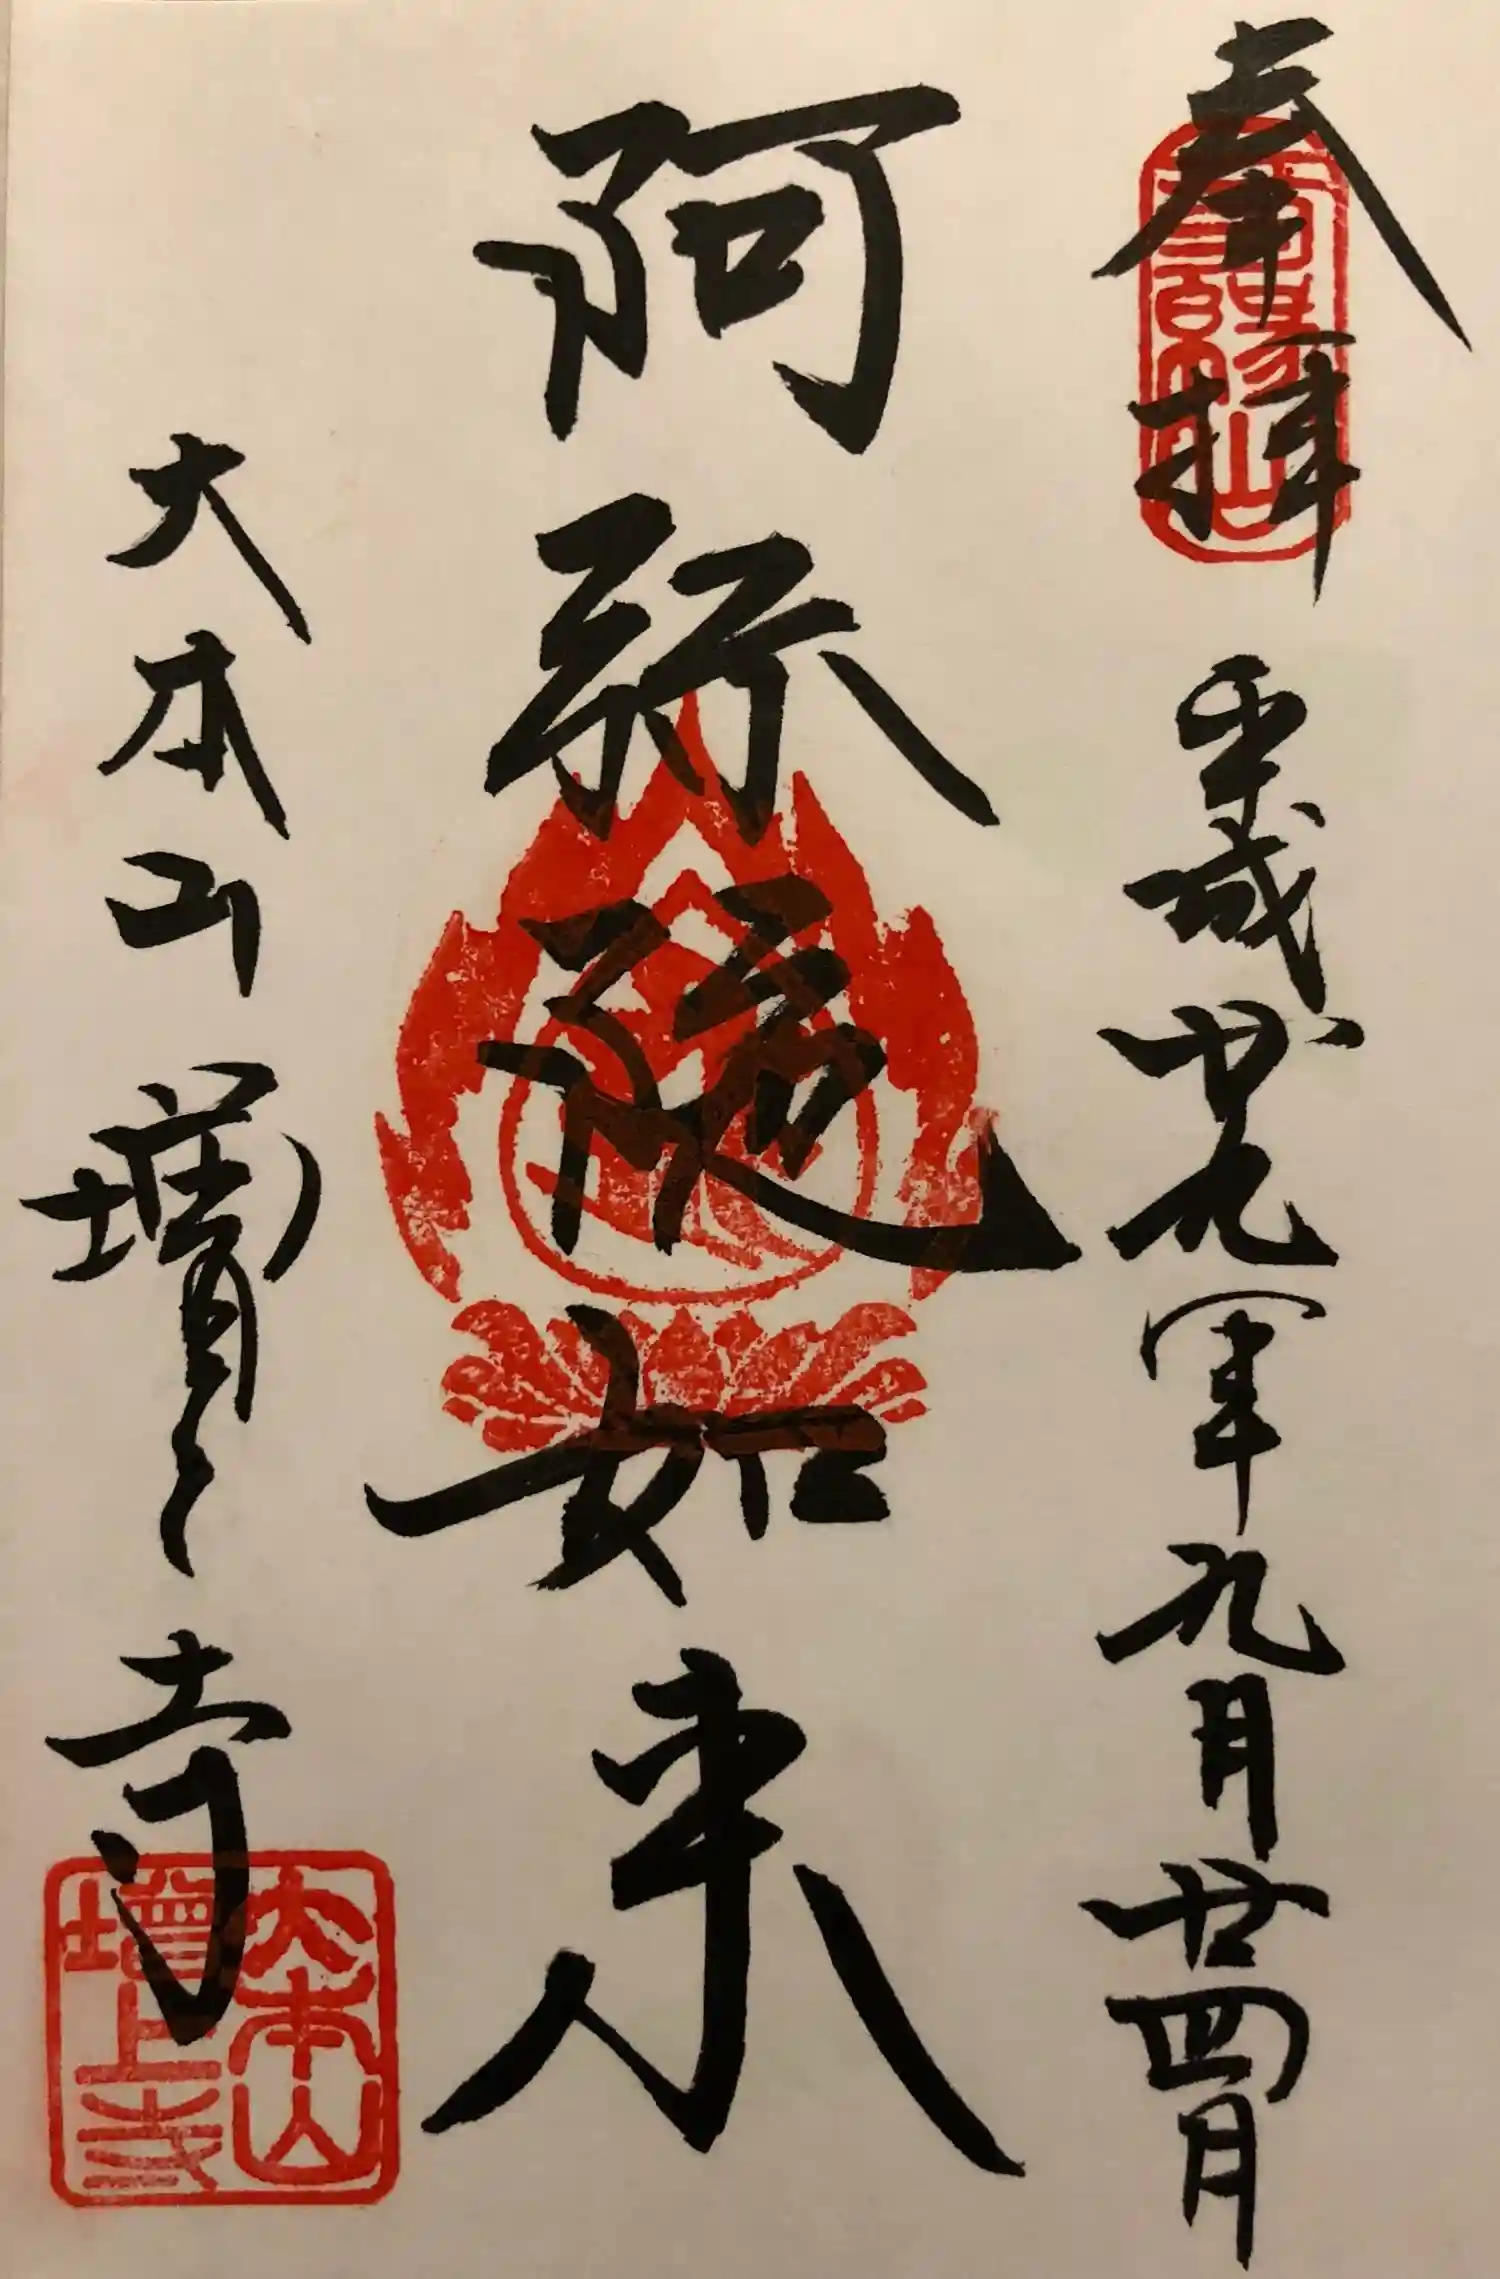 奉拝 平成廿九年九月廿四日
阿弥陀如来
大本山 増上寺
大本山
増上寺